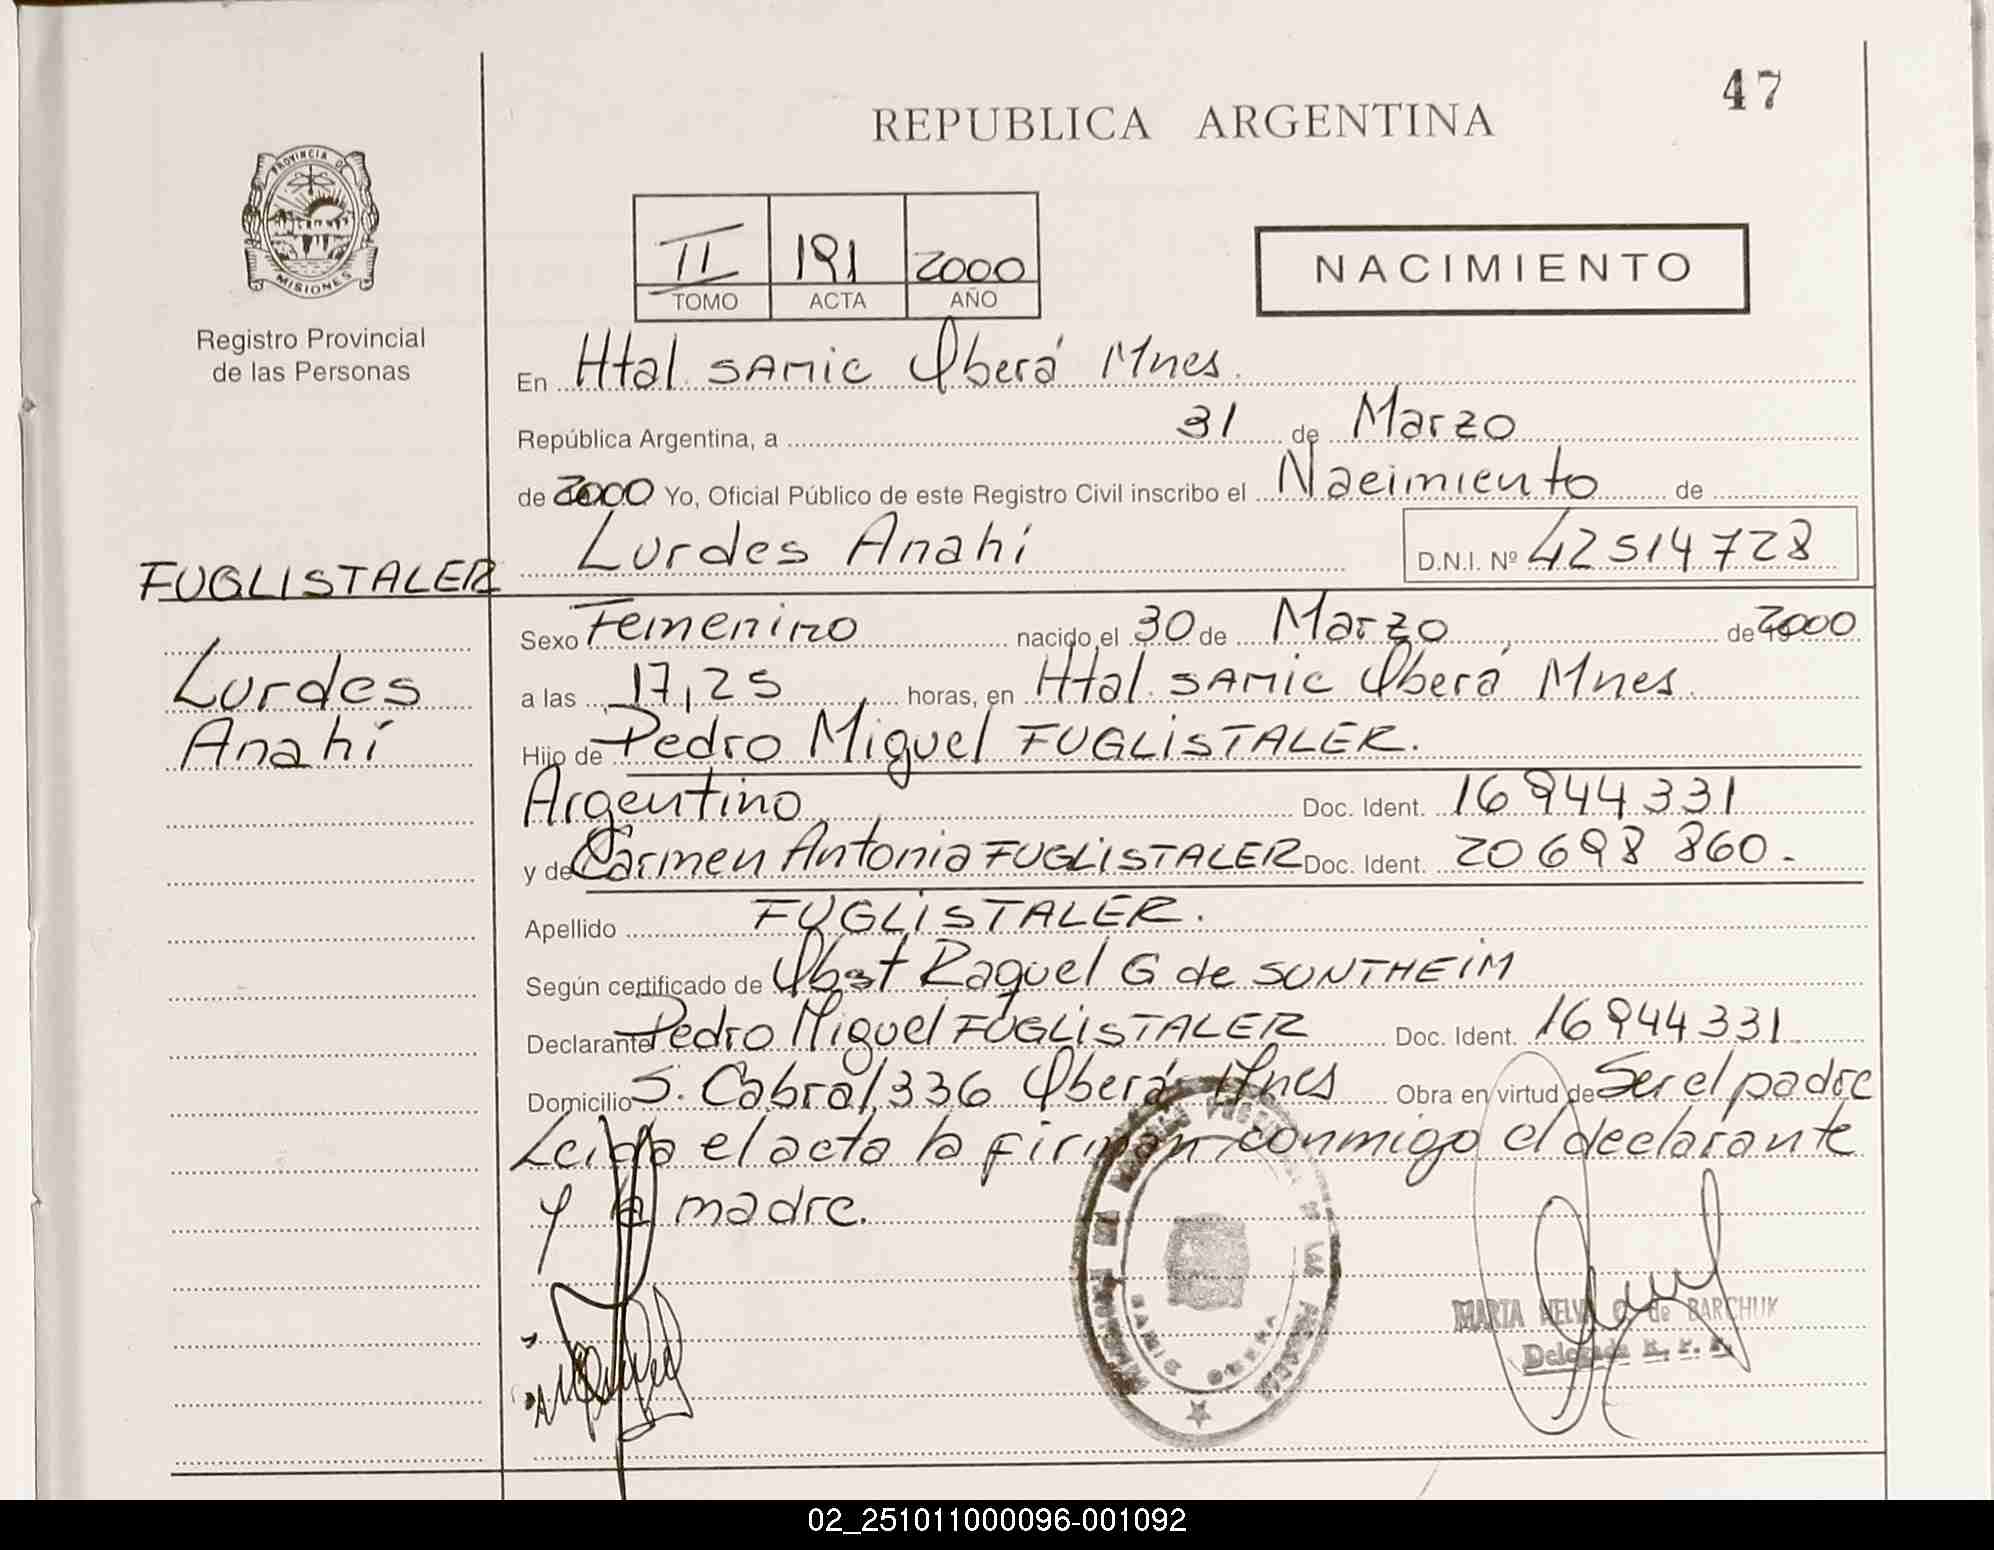 47
REPUBLICA ARGENTINA
PROVINCIA DE
MISIONES
Registro Provincial
de las Personas
II 191 2000
TOMO ACTA AÑO
NACIMIENTO
En Htal SAMIC Oberá Mnes.
República Argentina, a 31 de Marzo
de 2000 Yo, Oficial Público de este Registro Civil inscribo el Nacimiento de
Lurdes Anahí D.N.I. Nº 42514728
FUGLISTALER
Lurdes
Anahí
Sexo Femenino nacido el 30 de Marzo de 2000
a las 17,25 horas, en Htal. SAMIC Oberá Mnes.
Hijo de Pedro Miguel FUGLISTALER.
Argentino Doc. Ident. 16944331
y de Carmen Antonia FUGLISTALER Doc. Ident. 20698860.-
Apellido FUGLISTALER.
Según certificado de Obst Raquel G de SONTHEIM
Declarante Pedro Miguel FUGLISTALER Doc. Ident. 16944331
Domicilio S. Cabral 336 Oberá Mnes Obra en virtud de Ser el padre
Leida el acta la firman conmigo el declarante
y la madre.
SAMIC OBERA
MARTA de BARCHUK
Delegada R. P. P.
02_251011000096-001092